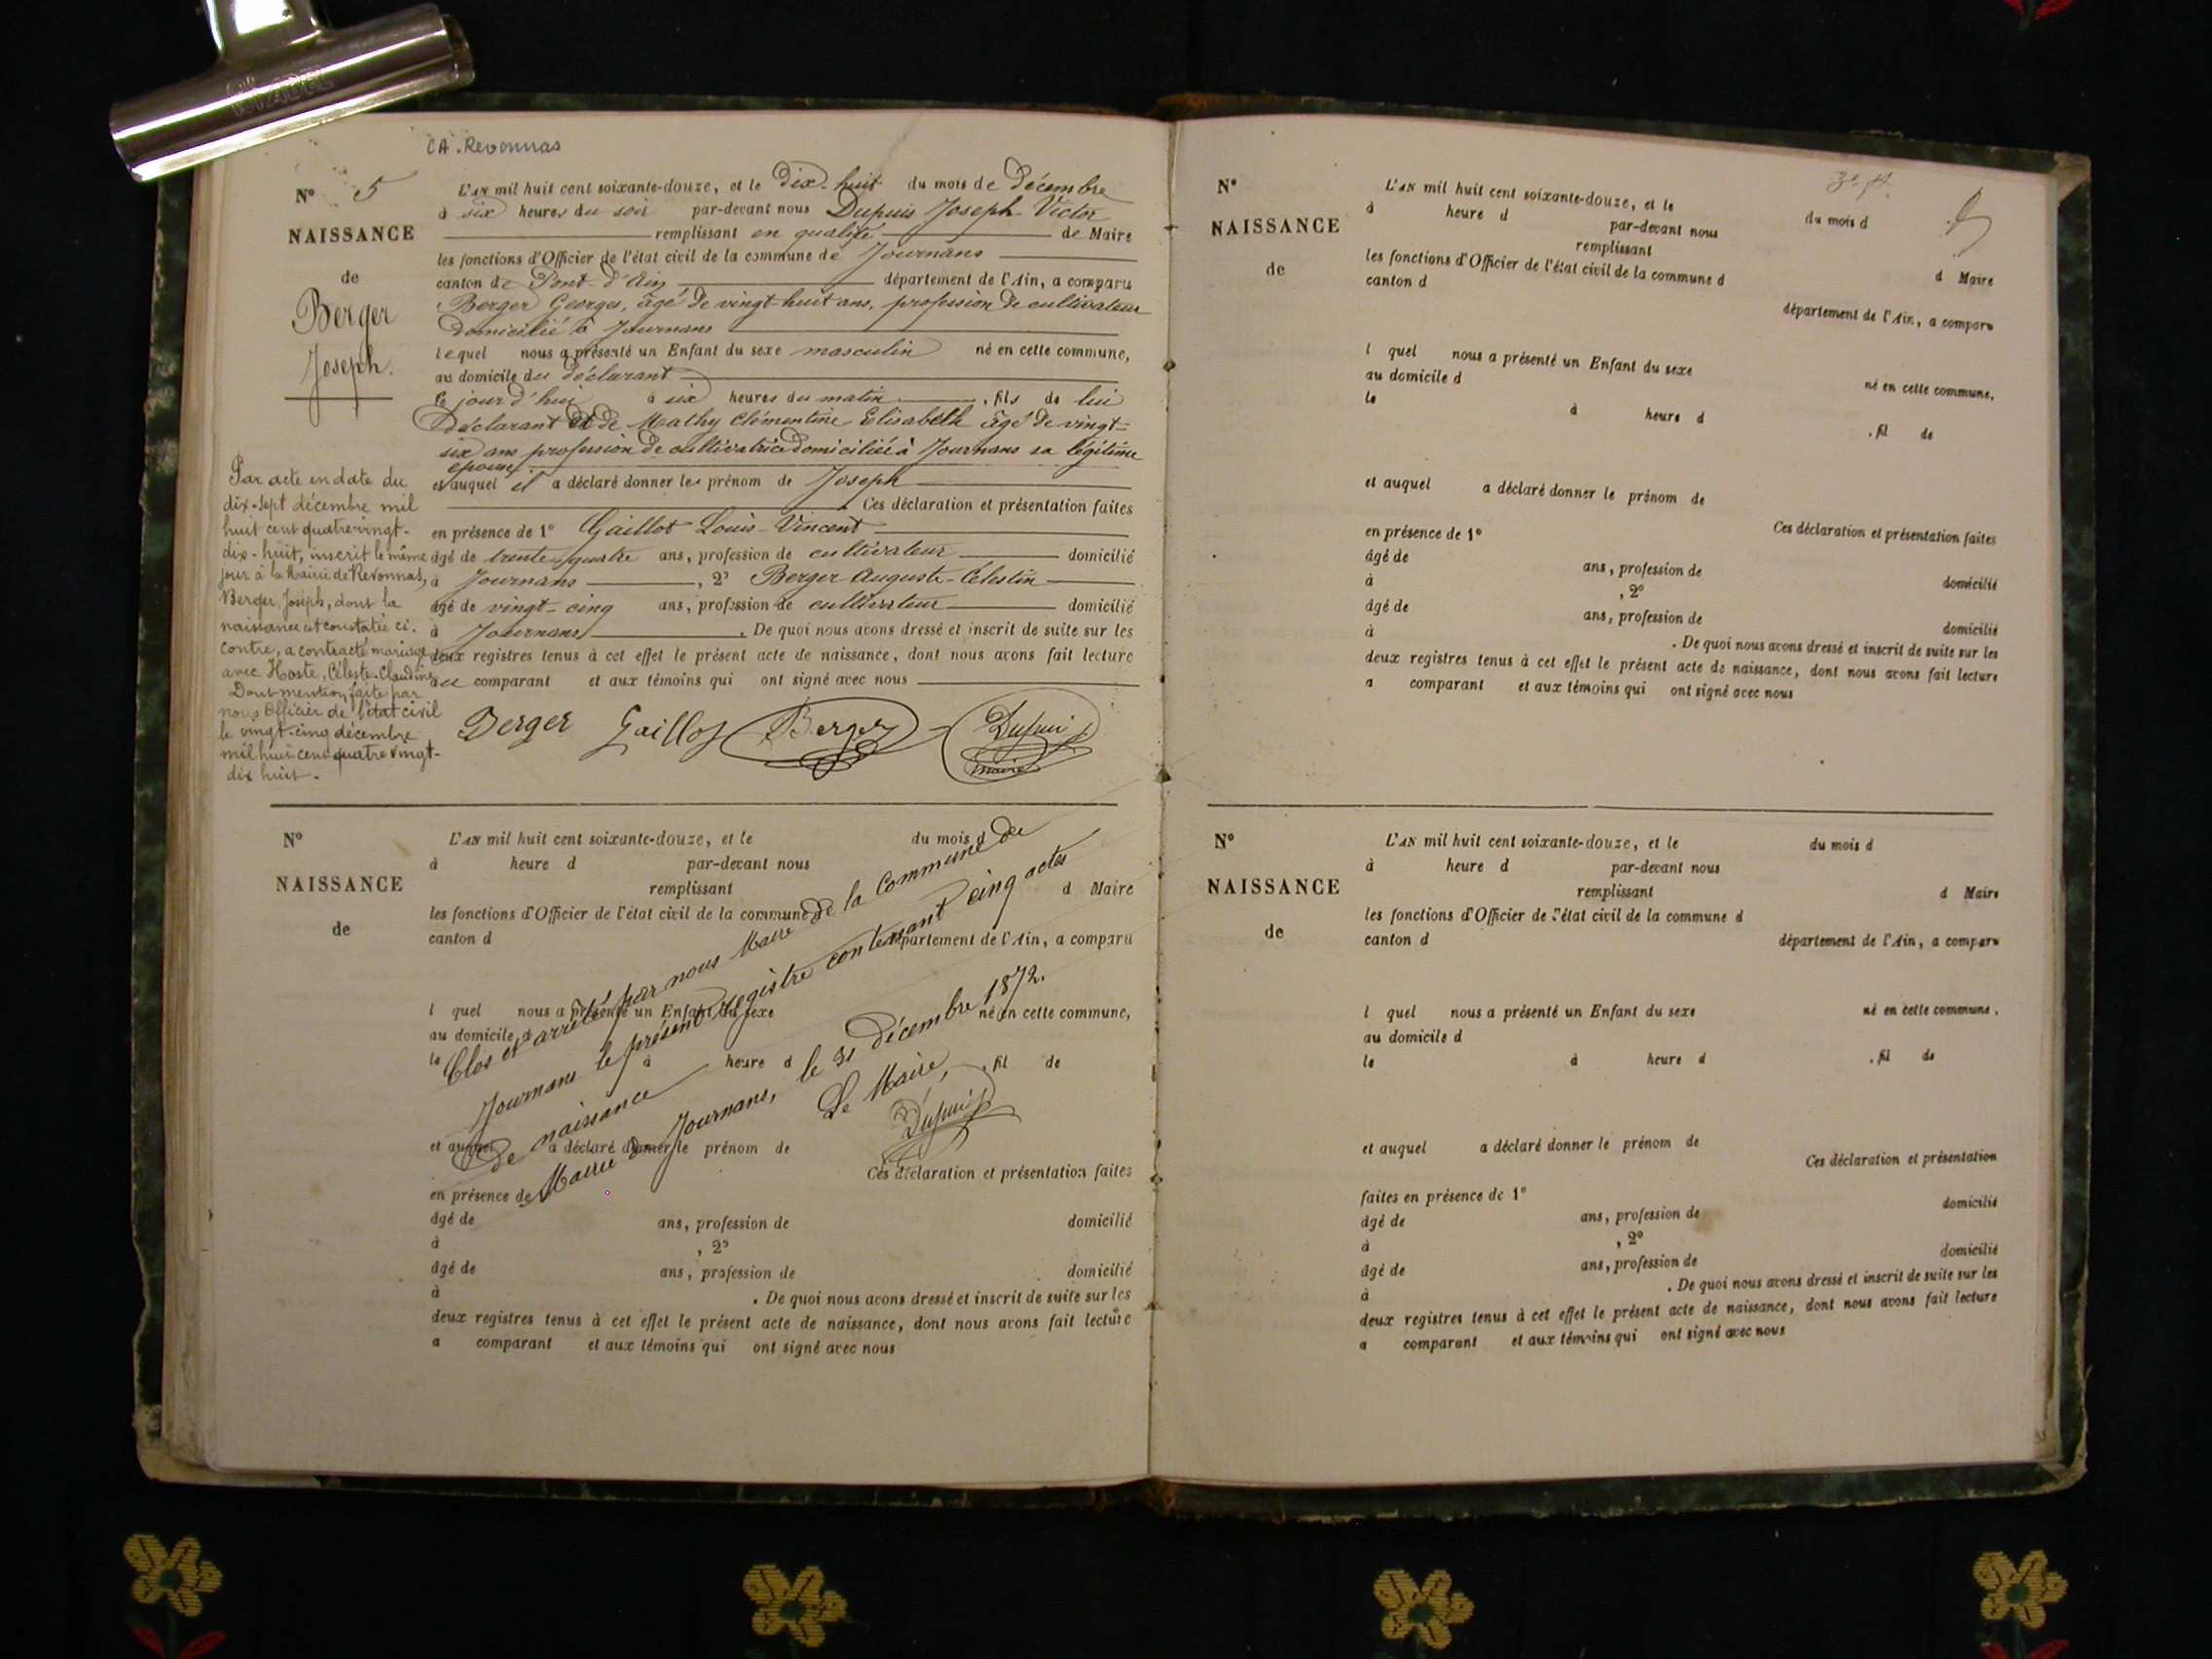 CA. Revonnas
N° 5
NAISSANCE
de
Berger
Joseph.
L'AN mil huit cent soixante-douze, et le dix-huit du mois de décembre
à six heures du soir par-devant nous Dupuis Joseph-Victor
remplissant en qualité de Maire
les fonctions d'Officier de l'état civil de la commune de Journans
canton de Pont-d'Ain département de l'Ain, a comparu
Berger Georges, âgé de vingt-huit ans, profession de cultivateur
domicilié à Journans
lequel nous a présenté un Enfant du sexe masculin né en cette commune,
au domicile du déclarant
le jour d'hui à six heures du matin, fils de lui
déclarant et de Mathy Clémentine Elisabeth âgé de vingt-
six ans profession de cultivatrice domiciliée à Journans sa légitime
épouse
et auquel il a déclaré donner les prénom de Joseph
Ces déclaration et présentation faites
en présence de 1° Gaillot Louis-Vincent
âgé de trente-quatre ans, profession de cultivateur domicilié
à Journans, 2° Berger Auguste-Célestin
âgé de vingt-cinq ans, profession de cultivateur domicilié
à Journans. De quoi nous avons dressé et inscrit de suite sur les
deux registres tenus à cet effet le présent acte de naissance, dont nous avons fait lecture
au comparant et aux témoins qui ont signé avec nous
Berger Gaillot Berger Dupuis
maire
Par acte en date du
dix-sept décembre mil
huit cent quatre-vingt-
dix-huit, inscrit le même
jour à la Mairie de Revonnas,
Berger Joseph, dont la
naissance est constatée ci-
contre, a contracté mariage
avec Hoste, Céleste-Claudine
Dont mention faite par
nous Officier de l'état civil
le vingt-cinq décembre
mil huit cent quatre vingt-
dix huit.
N°
NAISSANCE
de
L'AN mil huit cent soixante-douze, et le du mois d
à heure d par-devant nous
remplissant d Maire
les fonctions d'Officier de l'état civil de la commune d
canton d département de l'Ain, a comparu
l quel nous a présenté un Enfant du sexe né en cette commune,
au domicile d
le à heure d , fil de
et auquel a déclaré donner le prénom de
Ces déclaration et présentation faites
en présence de
âgé de ans, profession de domicilié
à , 2°
âgé de ans, profession de domicilié
à . De quoi nous avons dressé et inscrit de suite sur les
deux registres tenus à cet effet le présent acte de naissance, dont nous avons fait lecture
a comparant et aux témoins qui ont signé avec nous
Clos et arrêté par nous Maire de la Commune de
Journans le présent registre contenant cinq actes
de naissance
Mairie de Journans, le 31 décembre 1872.
Le Maire,
Dupuis
N°
NAISSANCE
de
L'AN mil huit cent soixante-douze, et le du mois d
à heure d par-devant nous
remplissant d Maire
les fonctions d'Officier de l'état civil de la commune d
canton d département de l'Ain, a comparu
l quel nous a présenté un Enfant du sexe né en cette commune,
au domicile d
le à heure d , fil de
et auquel a déclaré donner le prénom de
Ces déclaration et présentation faites
en présence de 1°
âgé de ans, profession de domicilié
à , 2°
âgé de ans, profession de domicilié
à . De quoi nous avons dressé et inscrit de suite sur les
deux registres tenus à cet effet le présent acte de naissance, dont nous avons fait lecture
a comparant et aux témoins qui ont signé avec nous
N°
NAISSANCE
de
L'AN mil huit cent soixante-douze, et le du mois d
à heure d par-devant nous
remplissant d Maire
les fonctions d'Officier de l'état civil de la commune d
canton d département de l'Ain, a comparu
l quel nous a présenté un Enfant du sexe né en cette commune,
au domicile d
le à heure d , fil de
et auquel a déclaré donner le prénom de
Ces déclaration et présentation
faites en présence de 1°
âgé de ans, profession de domicilié
à , 2°
âgé de ans, profession de domicilié
à . De quoi nous avons dressé et inscrit de suite sur les
deux registres tenus à cet effet le présent acte de naissance, dont nous avons fait lecture
a comparant et aux témoins qui ont signé avec nous